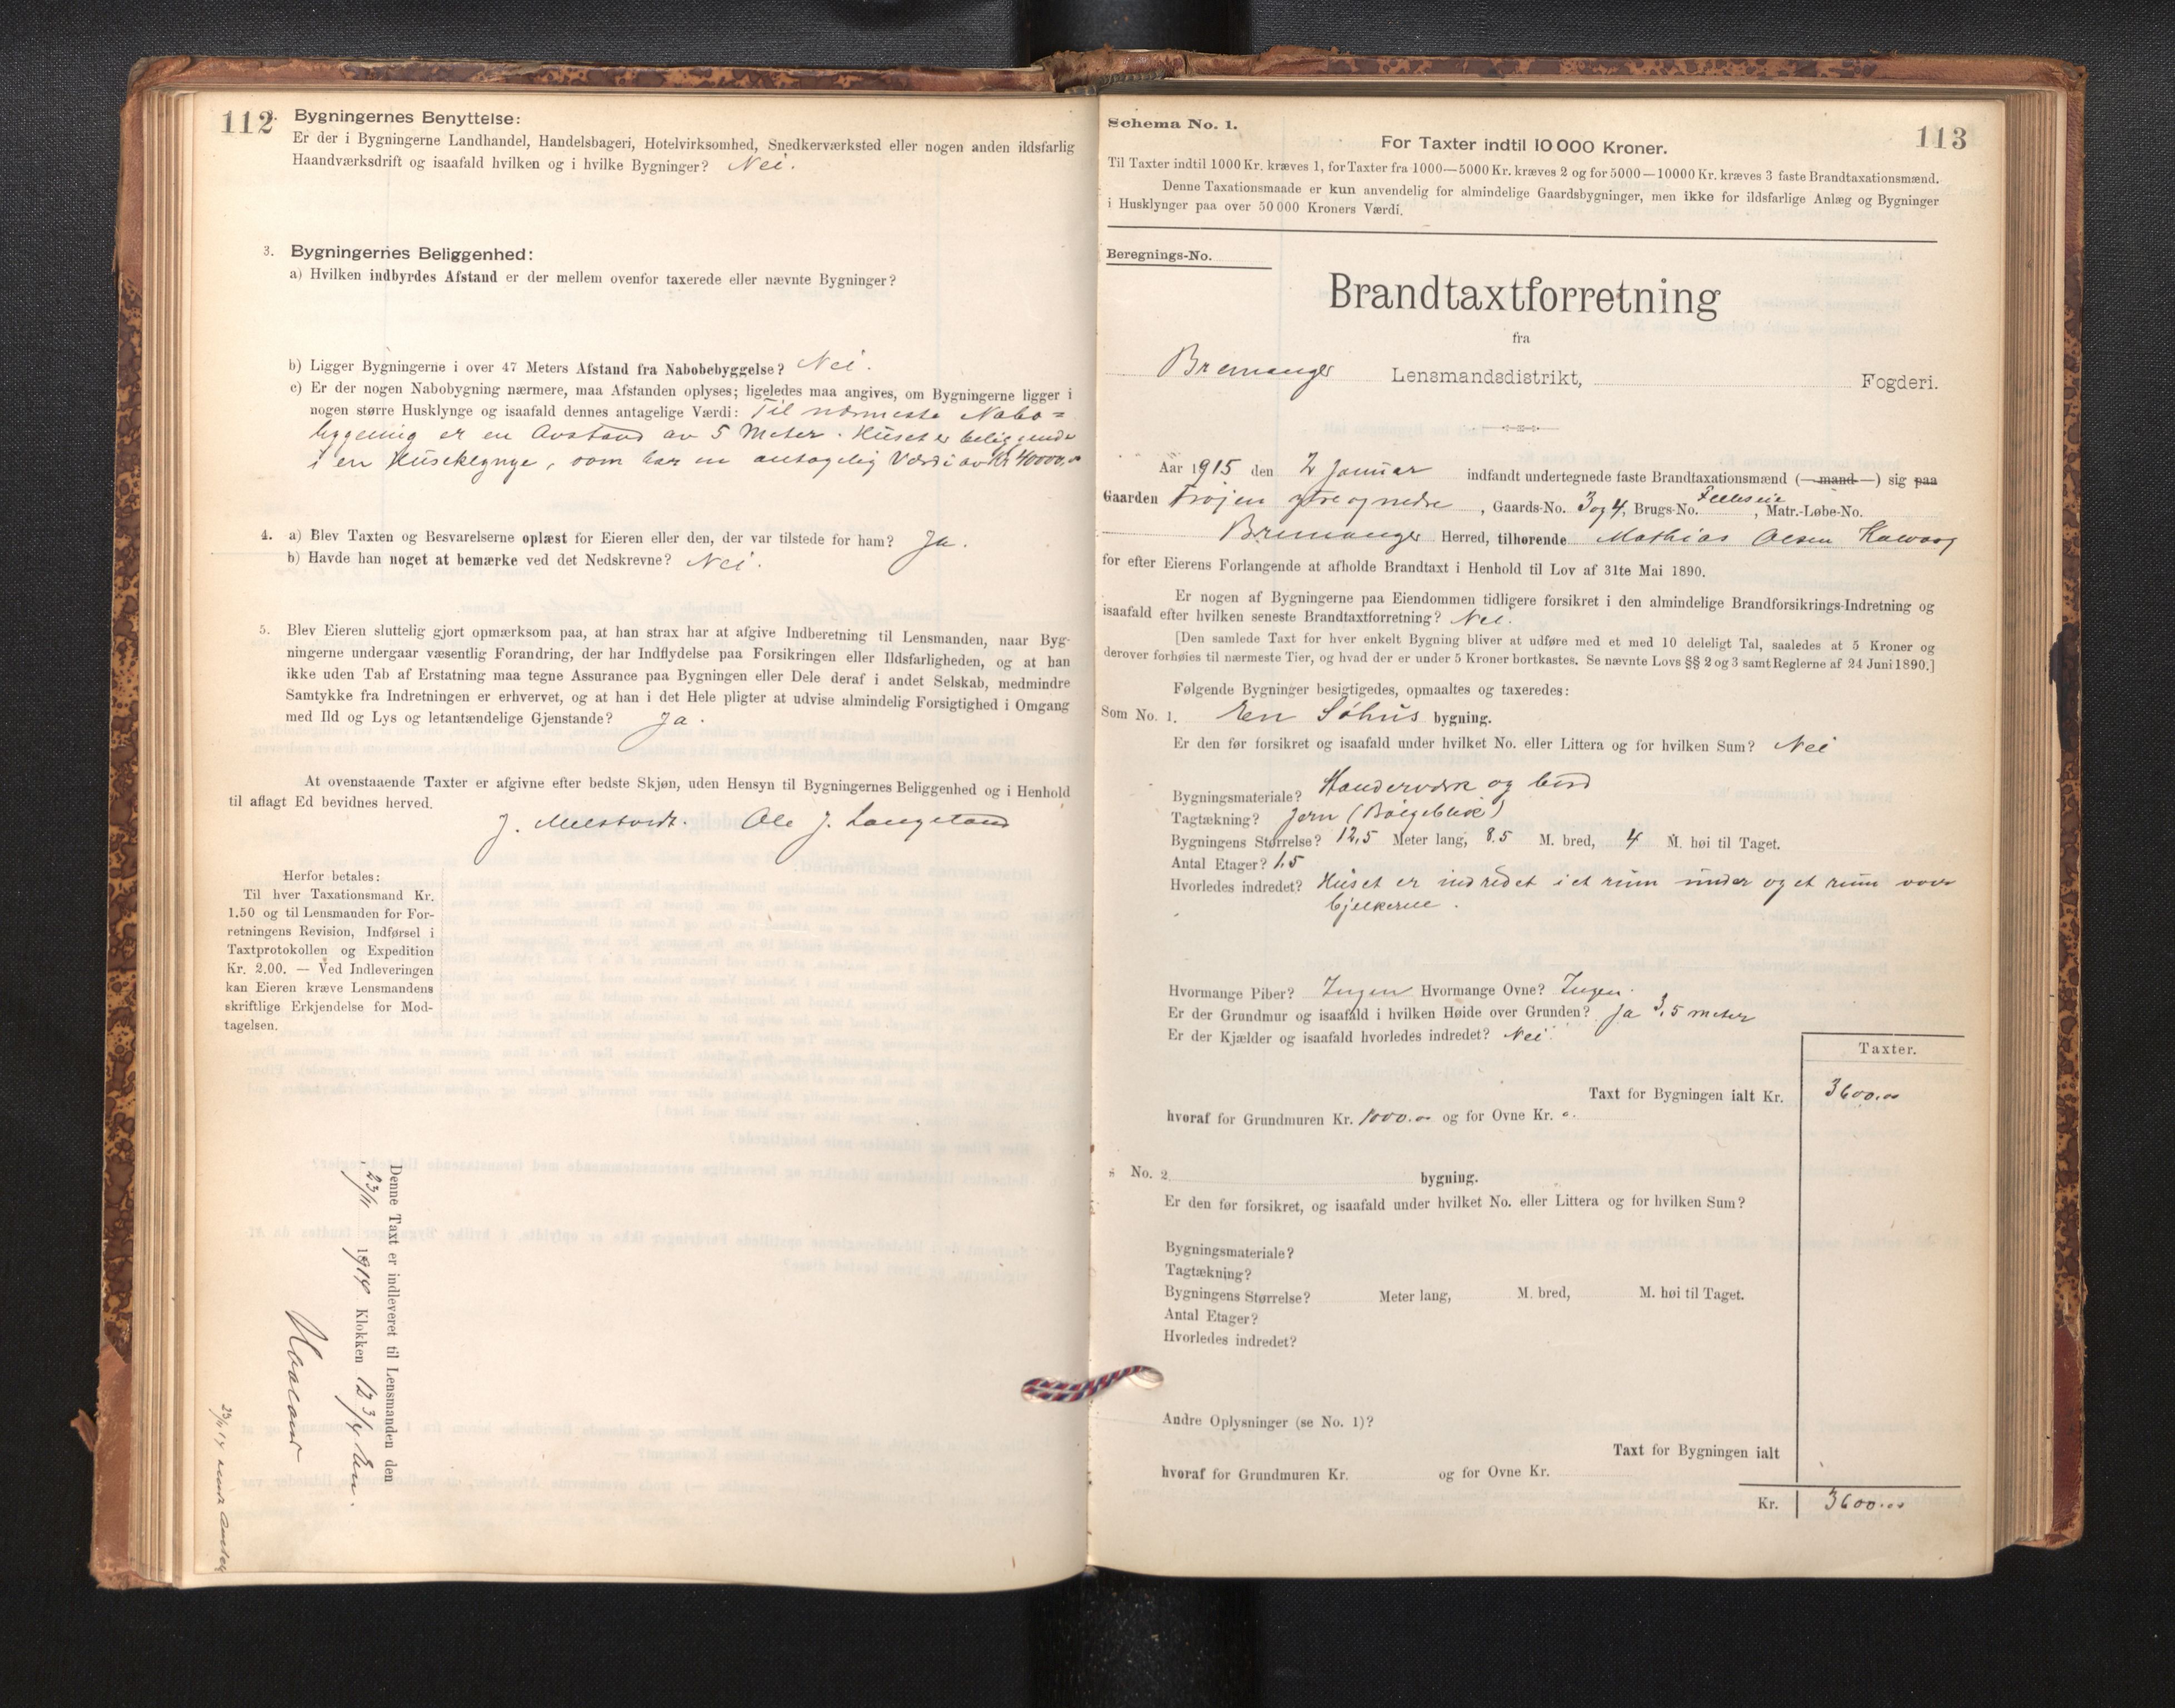 112
Bygningernes Benyttelse:
Er der i Bygningerne Landhandel, Handelsbageri, Hotelvirksomhed, Snedkerværksted eller nogen anden ildsfarlig
Haandværksdrift og isaafald hvilken og i hvilke Bygninger? Nei.
3. Bygningernes Beliggenhed:
a) Hvilken indbyrdes Afstand er der mellem ovenfor taxerede eller nævnte Bygninger?
b) Ligger Bygningerne i over 47 Meters Afstand fra Nabobebyggelse? Nei.
c) Er der nogen Nabobygning nærmere, maa Afstanden oplyses; ligeledes maa angives, om Bygningerne ligger i
nogen større Husklynge og isaafald dennes antagelige Værdi: Til nærmeste Nabo=
bygning er en Avstand av 5 Meter. Huset er beliggende
i en Huseklynge, som har en antagelig Værdi av Kr 40000,00
4. a) Blev Taxten og Besvarelserne oplæst for Eieren eller den, der var tilstede for ham? Ja.
b) Havde han noget at bemærke ved det Nedskrevne? Nei.
5. Blev Eieren sluttelig gjort opmærksom paa, at han strax har at afgive Indberetning til Lensmanden, naar Byg-
ningerne undergaar væsentlig Forandring, der har Indflydelse paa Forsikringen eller Ildsfarligheden, og at han
ikke uden Tab af Erstatning maa tegne Assurance paa Bygningen eller Dele deraf i andet Selskab, medmindre
Samtykke fra Indretningen er erhvervet, og at han i det Hele pligter at udvise almindelig Forsigtighed i Omgang
med Ild og Lys og letantændelige Gjenstande? Ja.
At ovenstaaende Taxter er afgivne efter bedste Skjøn, uden Hensyn til Bygningernes Beliggenhed og i Henhold
til aflagt Ed bevidnes herved.
J. Ole J. Langeland
Herfor betales:
Til hver Taxationsmand Kr.
1.50 og til Lensmanden for For-
retningens Revision, Indførsel i
Taxtprotokollen og Expedition
Kr. 2.00. — Ved Indleveringen
kan Eieren kræve Lensmandens
skriftlige Erkjendelse for Mod-
tagelsen.
Denne Taxt er indleveret til Lensmanden den
23/11 1914 Klokken 12 3/4 Em.
23/11 14
113
Schema No. 1.
For Taxter indtil 10000 Kroner.
Til Taxter indtil 1000 Kr. kræves 1, for Taxter fra 1000—5000 Kr. kræves 2 og for 5000—10000 Kr. kræves 3 faste Brandtaxationsmænd.
Denne Taxationsmaade er kun anvendelig for almindelige Gaardsbygninger, men ikke for ildsfarlige Anlæg og Bygninger
i Husklynger paa over 50000 Kroners Værdi.
Beregnings-No.
Brandtaxtforretning
fra
Bremanger Lensmandsdistrikt, Fogderi.
Aar 1915 den 2 Januar indfandt undertegnede faste Brandtaxationsmænd (—mand—) sig paa
Gaarden Frøjen ytre og nedre, Gaards-No. 3 og 4, Brugs-No. Felleseie, Matr.-Løbe-No.
Bremanger Herred, tilhørende Mathias Olsen Kalvaag
for efter Eierens Forlangende at afholde Brandtaxt i Henhold til Lov af 31te Mai 1890.
Er nogen af Bygningerne paa Eiendommen tidligere forsikret i den almindelige Brandforsikrings-Indretning og
isaafald efter hvilken seneste Brandtaxtforretning? Nei.
[Den samlede Taxt for hver enkelt Bygning bliver at udføre med et med 10 deleligt Tal, saaledes at 5 Kroner og
derover forhøies til nærmeste Tier, og hvad der er under 5 Kroner bortkastes. Se nævnte Lovs §§ 2 og 3 samt Reglerne af 24 Juni 1890.]
Følgende Bygninger besigtigedes, opmaaltes og taxeredes:
Som No. 1. En Søhus bygning.
Er den før forsikret og isaafald under hvilket No. eller Littera og for hvilken Sum? Nei
Bygningsmateriale? og bord
Tagtækning? Jern (Bølgeblik)
Bygningens Størrelse? 12,5 Meter lang, 8.5 M. bred, 4 M. høi til Taget.
Antal Etager? 1.5
Hvorledes indredet? Huset er indredet i et rum under og et rum over
bjelkerne.
Hvormange Piber? Ingen Hvormange Ovne? Ingen.
Er der Grundmur og isaafald i hvilken Høide over Grunden? Ja 3,5 meter
Er der Kjælder og isaafald hvorledes indredet? Nei.
Taxter.
Taxt for Bygningen ialt Kr. 3600.00
hvoraf for Grundmuren Kr. 1000.00 og for Ovne Kr. 0.
No. 2. bygning.
Er den før forsikret, og isaafald under hvilket No. eller Littera og for hvilken Sum?
Bygningsmateriale?
Tagtækning?
Bygningens Størrelse? Meter lang, M. bred, M. høi til Taget.
Antal Etager?
Hvorledes indredet?
Andre Oplysninger (se No. 1)?
Taxt for Bygningen ialt
hvoraf for Grundmuren Kr. og for Ovne Kr.
Kr. 3600.00